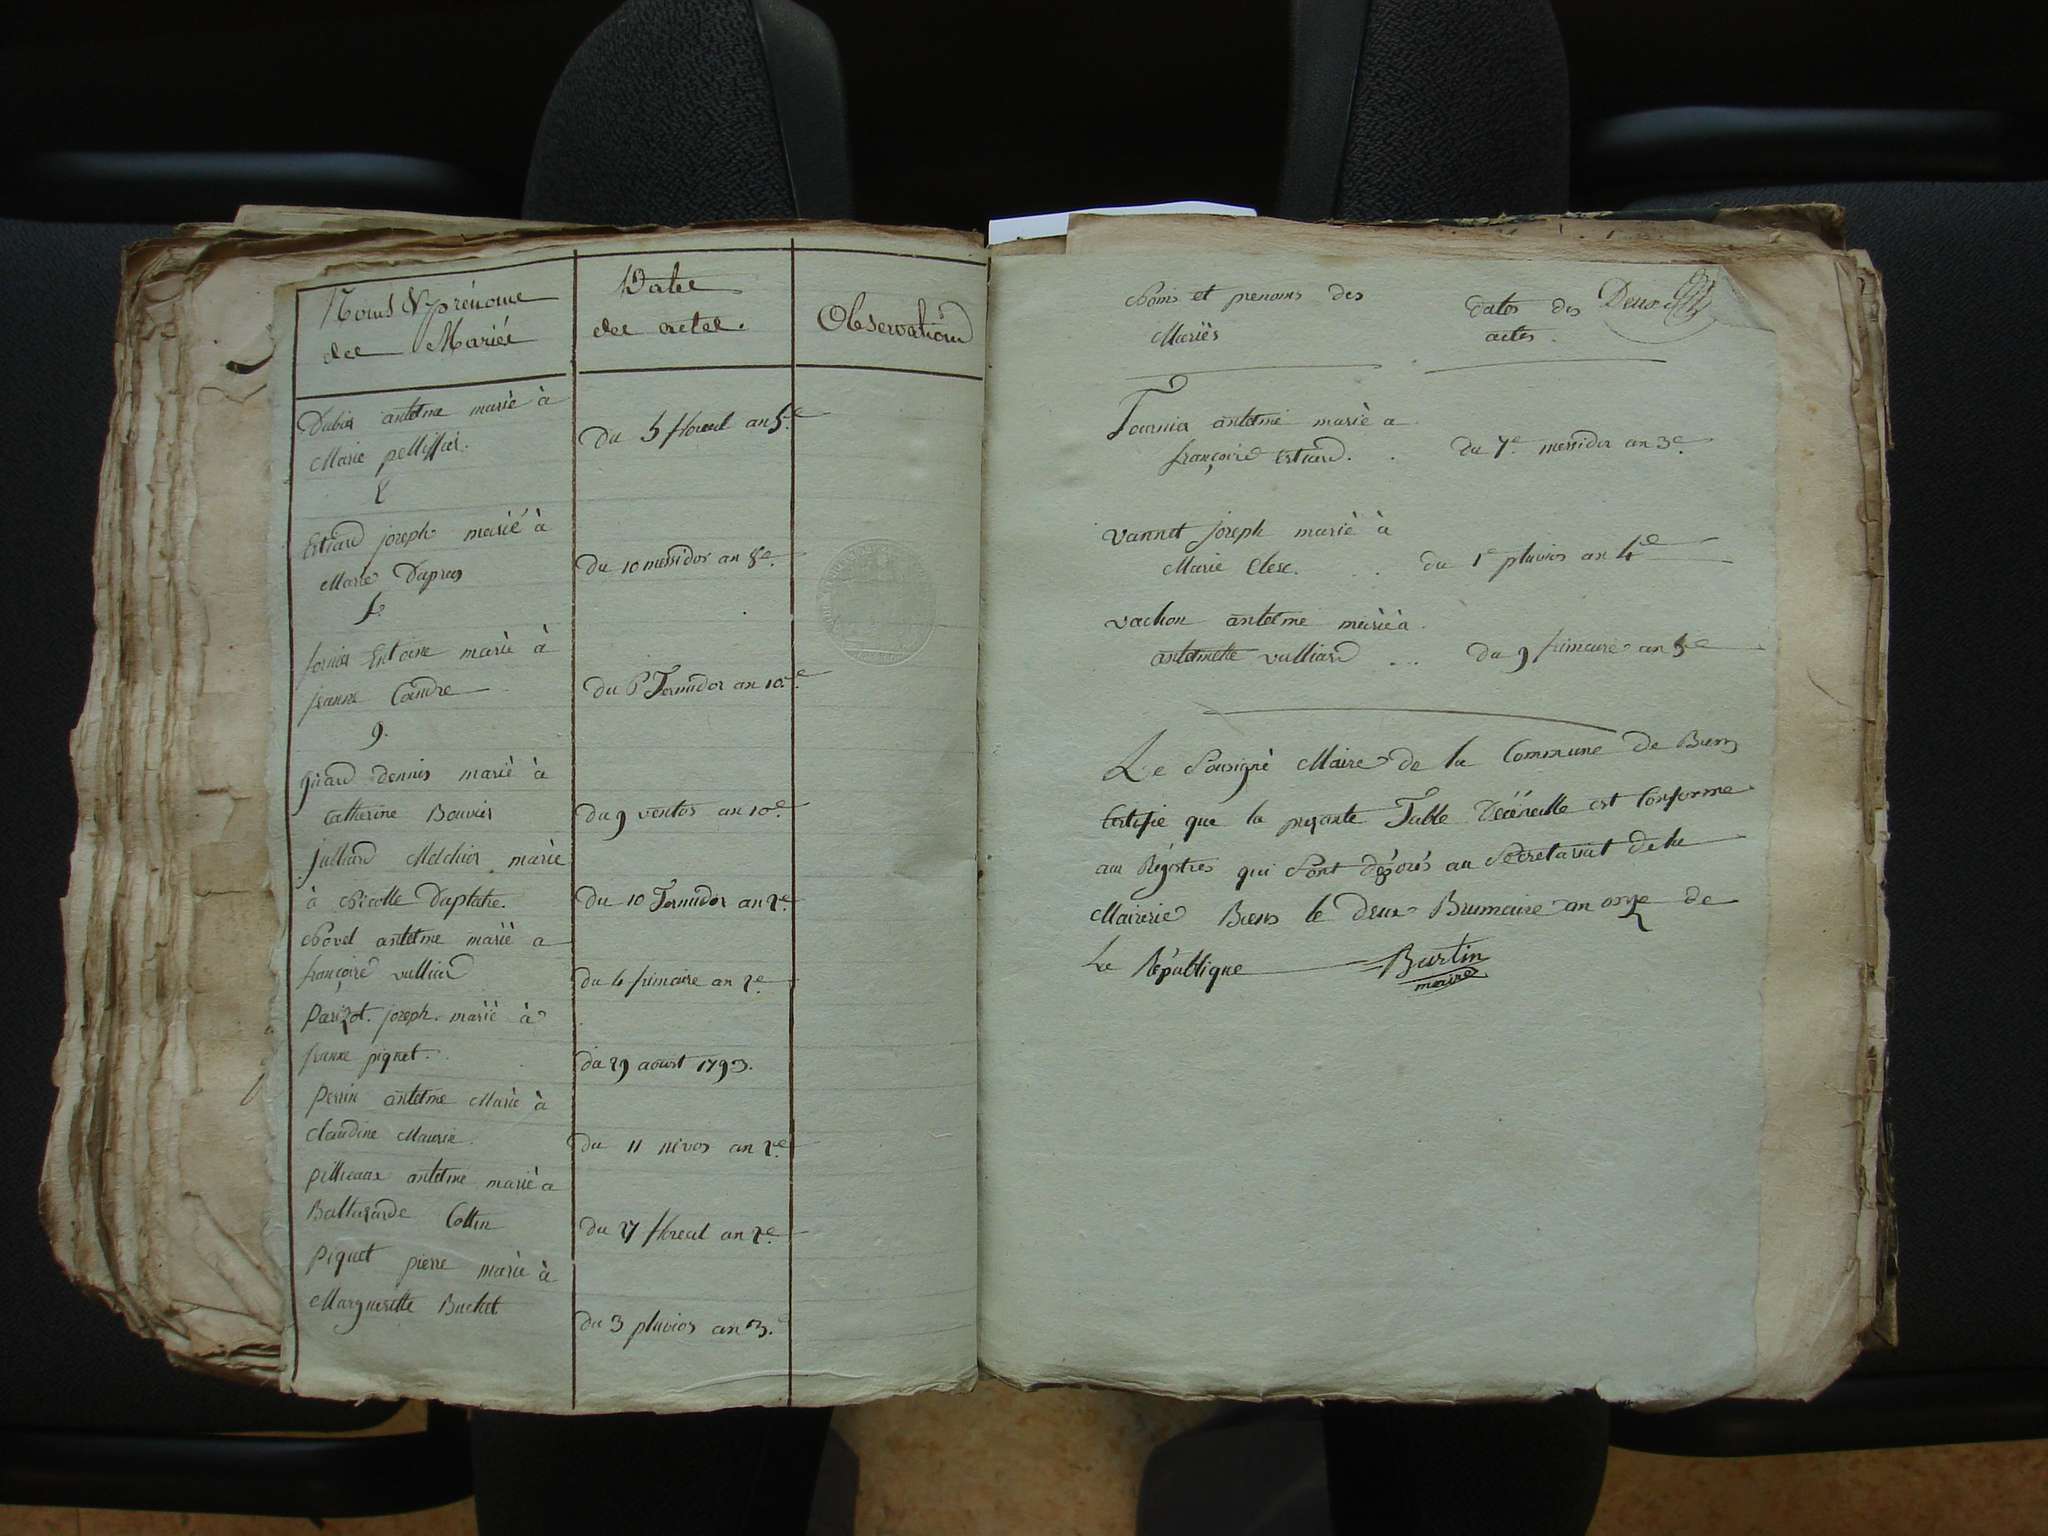 Noms & prénoms
des Mariés
Date
des actes.
Observations
Dubin antelme marié à
Marie pellissier.
du 5 floreal an 5.e
E
Ertrard joseph marié à
Marie Dapras
du 10 messidor an 8e.
f.
fornier Entoine marié à
jeanne Coindre
du Termidor an 10.e
g.
girard dennis marié à
Catherine Bouvier
du 9 ventos an 10e.
julliard Melchior marié
à Nicolle Daplatre.
du 10 Termidor an 2e.
Novel antelme marié a
françoise vulliard
du 4 frimaire an 2e.
Parizot. joseph. marié à
jeanne piquet.
du 29 aoust 1793.
perrin antelme Marié à
Claudine Maurie.
du 11 nivos an 2e.
antelme marié a
Baltazarde Cottin
du 27 floreal an 2e.
piquet pierre marié à
Margueritte Buchet
du 3 pluvios an 3.
Noms et prenoms des
Mariés
dates des
actes.
Deux
Tournier antelme marié a
françoise Ertrard.
du 7e. messidor an 3e.
vannet joseph marié à
Marie Clerc.
du 1e pluvios an 4e
vachon antelme marié à
antelmette vulliard ...
du 9 frimaire an 5e
Le Sousigné Maire de la Commune de Bren
Certifie que la prezante Table Décénalle est Conforme
aux Régistres qui Sont dépozés au Secretariat de la
Mairerie Brens le deux Brumaire an onze de
La République
Burtin
maire